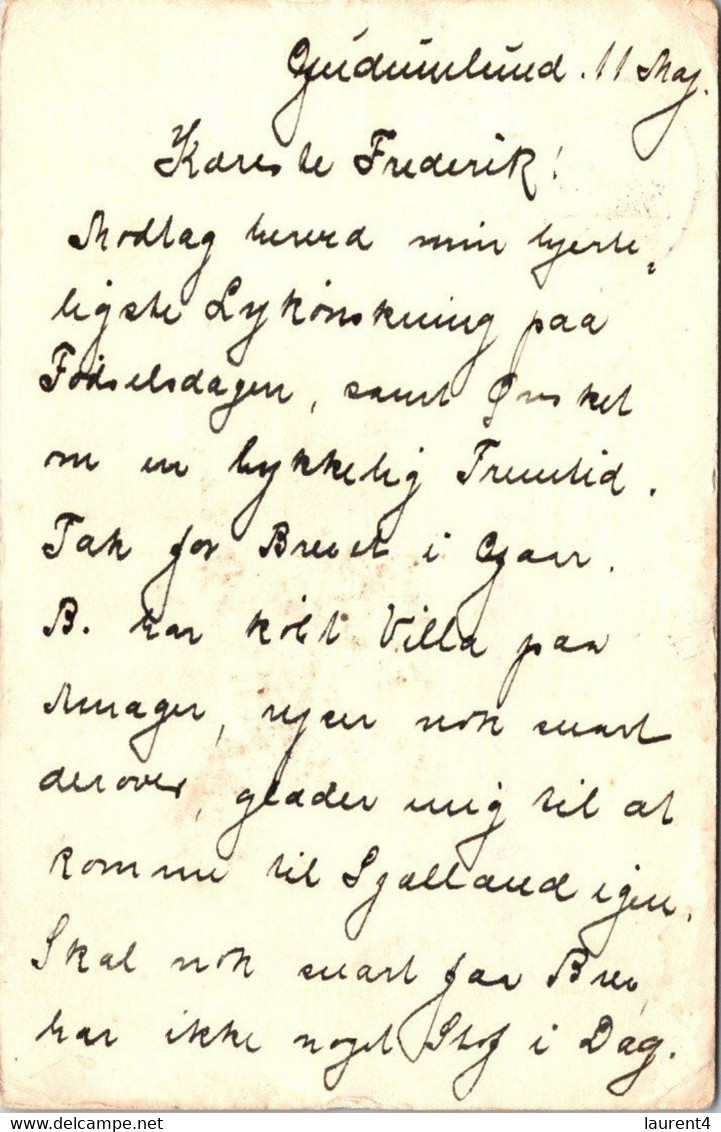 Gudumlund. 11 Maj.
Kæreste Frederik!
Modtag herved min hjerte,
ligste Lykönskning paa
Födselsdagen, samt Ønsket
om en lykkelig Fremtid.
Tak for Brevet i Gaar.
B. har köbt Villa paa
Amager, rejser nok snart
derover, glæder mig til at
komme til Sjælland igen.
Skal nok snart faa Brev,
har ikke noget Stof i Dag.
delcampe.net
laurent4